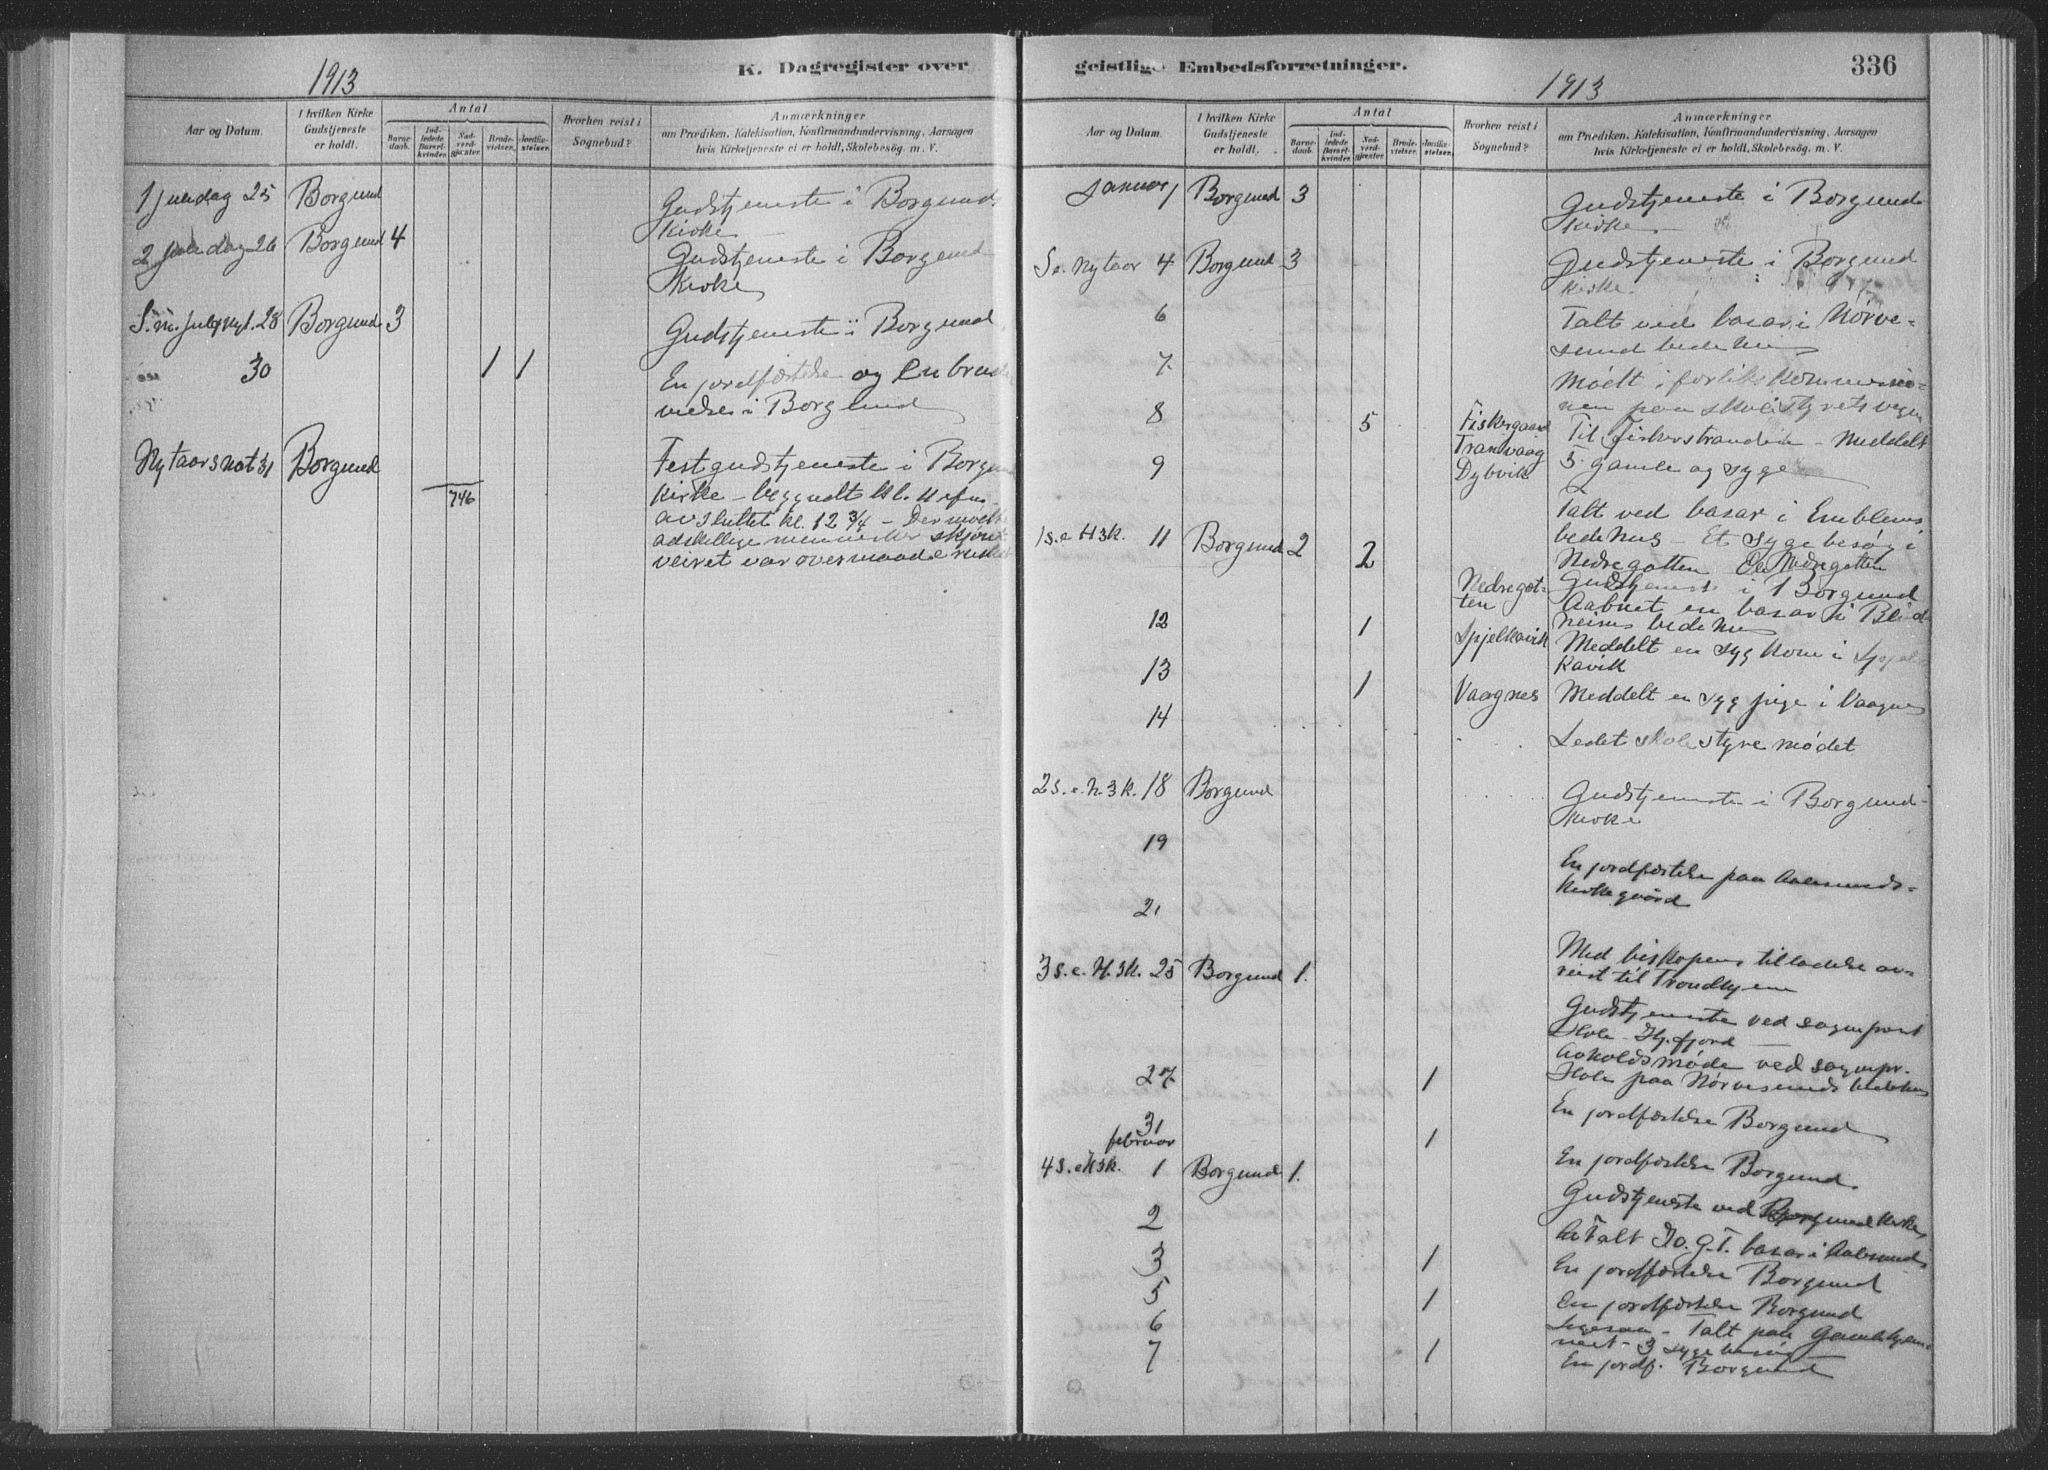 K. Dagregister over
1913
Aar og Datum.
I hvilken Kirke Gudstjeneste er holdt.
Antal
Barnedaab.
Indledede Barselkvinder.
Nadverdgjæster.
Brudevielser.
Jordfæstelser.
Hvorhen reist i Sognebud?
Anmærkninger
om Prædiken, Katekisation, Konfirmandundervisning, Aarsagen
hvis Kirketjeneste ei er holdt, Skolebesög m. V.
1 juledag 25 Borgund Gudstjeneste i Borgunds
kirke
2 juledag 26 Borgund 4 Gudstjeneste i Borgund
kirke
S.m. jul & nyt. 28 Borgund 3 Gudstjeneste i Borgund
30 1 1 En jordfæstelse og en brude
vielse i Borgund
Nytaarsnat 31 Borgund Festgudstjeneste i Borgund
746 kirke – begyndt kl. 11
avsluttet kl. 12 3/4 – Der mødte
adskillige mennesker skjønt
veiret var overmaade
geistlige Embedsforretninger.
336
1913
Aar og Datum.
I hvilken Kirke Gudstjeneste er holdt.
Antal
Barnedaab.
Indledede Barselkvinder.
Nadverdgjæster.
Brudevielser.
Jordfæstelser.
Hvorhen reist i Sognebud?
Anmærkninger
om Prædiken, Katekisation, Konfirmandundervisning, Aarsagen
hvis Kirketjeneste ei er holdt, Skolebesög m. V.
Januar 1 Borgund 3 Gudstjeneste i Borgund
kirke
S.e. Nytaar 4 Borgund 3 Gudstjeneste i Borgund
kirke.
6 Talt ved basar i Nørve-
sund bedehus
7. Mødt i forlikskommissio-
nen paa skolestyrets vegne
8 5 Fiskergaard Til Fiskerstranden – Meddelt
Tranvaag 5 gamle og syge
9 Dybvik
Talt ved basar i Emblems
bedehus – Et sygebesøg i
Nedregotten
1 s.e. H3k. 11 Borgund 2 2 Nedregot- Gudstjenest i Borgund
ten Aabnet en basar i Blind-
heims bedehus
12 1 Spjelkavik Meddelt en syg kone i Spjel-
kavik
13 1 Vaagnes Meddelt en syg pige i Vaagnes
14 Ledet skolestyremødet
2 s.e. H.3k. 18 Borgund Gudstjeneste i Borgund-
kirke
19 En jordfæstelse paa Aalesunds-
kirkegaard
21 Med biskopens tilladelse av-
reist til Trondhjem
3 s.e. H.3k. 25 Borgund 1. Gudstjeneste ved sogneprest
Hole – Hj.fjord
Avholdsmøde ved sognepr.
Hole paa Nørvesunds bedehus
27. 1 En jordfæstelse Borgund
31 1 En jordfæstelse Borgund
februar
4 s.e. H3k. 1 Borgund 1. Gudstjeneste ved Borgund kirke
2 Talt I.O.G.T. basar i Aalesund
3 1 En jordfæstelse Borgund
5 1 En jordfæstelse Borgund
6 Talt paa Gamlehjem-
met – 3 sygebesøg
7 1 En jordf. Borgund